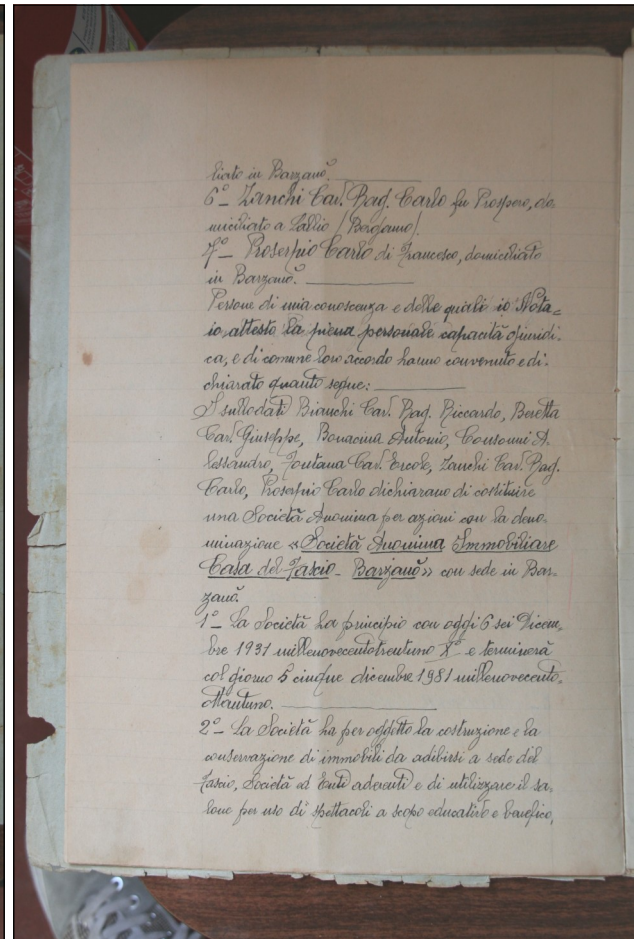 liato in Barzanò.
6° - Zanchi Cav. Rag. Carlo fu Prospero, do.
miciliato a Lallio (Bergamo).
7° - Proserpio Carlo di Francesco, domiciliato
in Barzanò.
Persone di mia conoscenza e delle quali io Nota=
io attesto la piena personale capacità giuridi.
ca, e di comune loro accordo hanno convenuto e di.
chiarato quanto segue:
I sullodati Bianchi Cav. Rag. Riccardo, Beretta
Cav. Giuseppe, Bonacina Antonio, Consonni A.
lessandro, Fontana Cav. Ercole, Zanchi Cav. Rag.
Carlo, Proserpio Carlo dichiarano di costituire
una Società Anonima per azioni con la deno.
minazione «Società Anonima Immobiliare
Casa del Fascio - Barzanò» con sede in Bar=
zanò.
1° - La Società ha principio con oggi 6 sei Dicem=
bre 1931 millenovecentotrentuno X° e terminerà
col giorno 5 cinque dicembre 1981 millenovecento=
ottantuno.
2° - La Società ha per oggetto la costruzione e la
conservazione di immobili da adibirsi a sede del
Fascio, Società ed Enti aderenti e di utilizzare il sa.
lone per uso di spettacoli a scopo educativo e benefico,